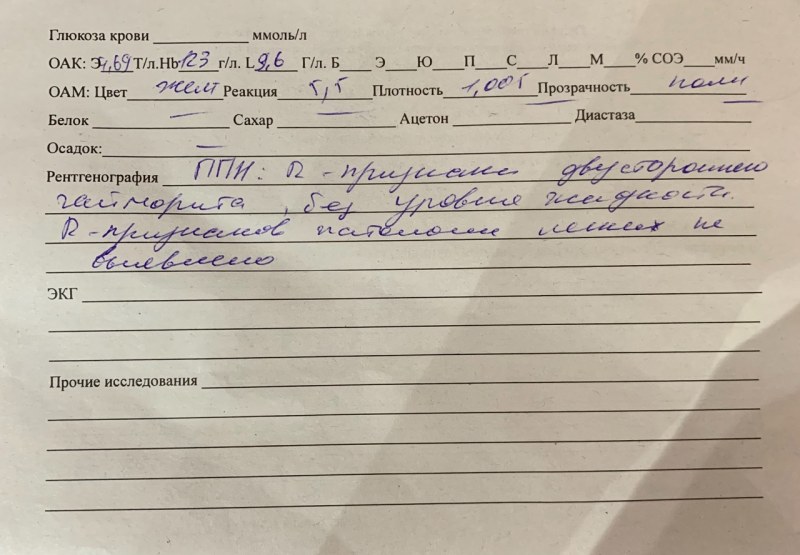 Глюкоза крови ____________ ммоль/л
ОАК: Э 4,69 Т/л.Hb 123 г/л. L 9,6 Г/л. Б____Э____Ю____П____С____Л____М____% СОЭ____мм/ч
ОАМ: Цвет желт Реакция 5,5 Плотность 1,005 Прозрачность полн
Белок — Сахар — Ацетон — Диастаза
Осадок: —
Рентгенография ППН: R-признаки двустороннего
гайморита, без уровня жидкости.
R-признаков патологии легких не
выявлено
ЭКГ
Прочие исследования